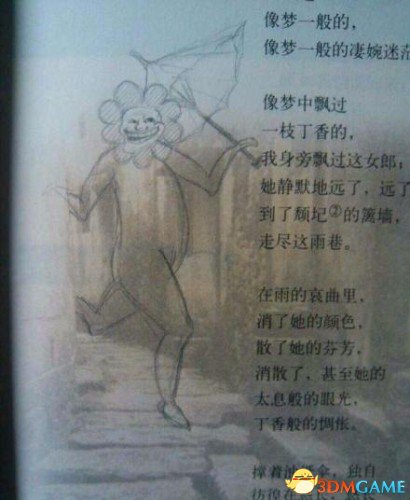 像梦一般的，
像梦一般的凄婉迷茫
像梦中飘过
一枝丁香的，
我身旁飘过这女郎；
她静默地远了，远了
到了颓圮②的篱墙，
走尽这雨巷。
在雨的哀曲里，
消了她的颜色，
散了她的芬芳，
消散了，甚至她的
太息般的眼光，
丁香般的惆怅。
撑着油纸伞，独自
彷徨在
3DMGAME